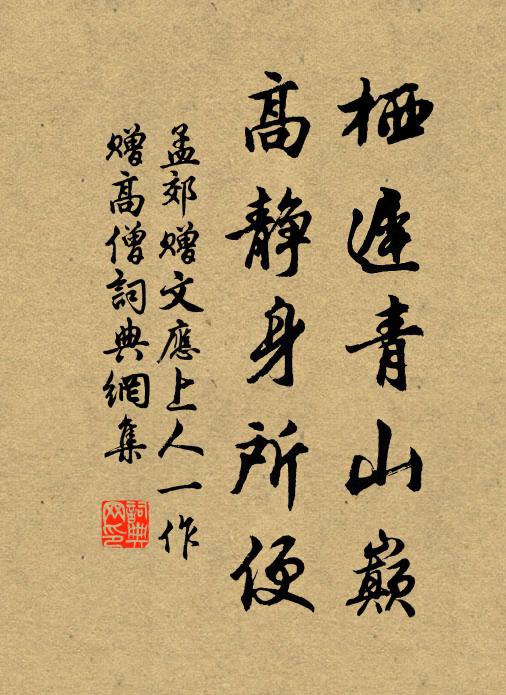 栖遲青山巔
高静身所便
孟郊贈文應上人一作
贈高僧詞典網集
詞典網印